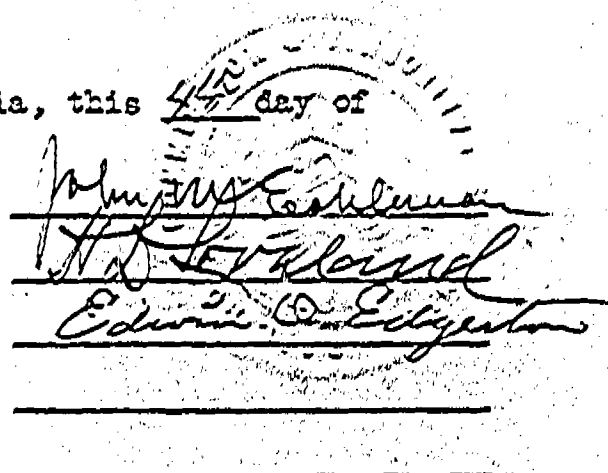 ia, this 4th day of
John M Eshleman
H D Loveland
Edwin O. Edgerton